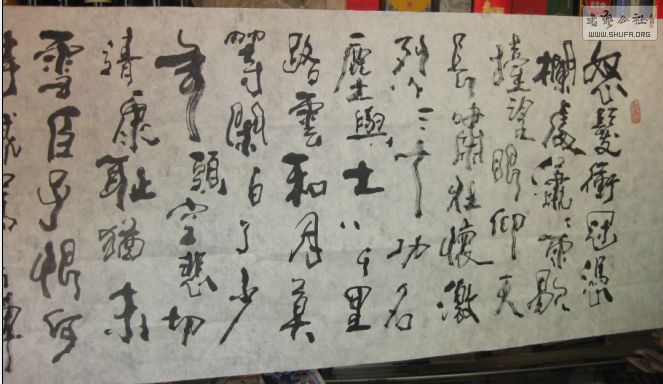 怒髮衝冠憑
欄處瀟〻雨歇
擡望眼仰天
長嘯壯懷激
烈三十功名
塵與土八千里
路雲和月莫
等閑白了少
年頭空悲切
靖康恥猶未
雪臣子恨何
書藝公社
WWW.SHUFA.ORG